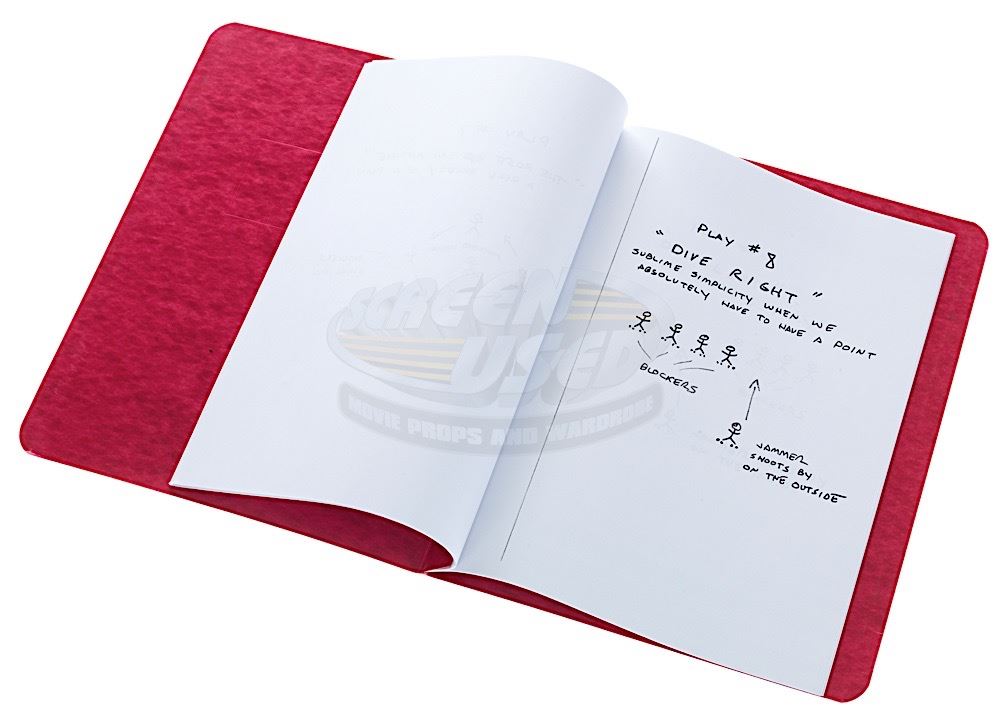 PLAY # 8
"DIVE RIGHT"
SUBLIME SIMPLICITY WHEN WE
ABSOLUTELY HAVE TO HAVE A POINT
BLOCKERS
JAMMER
SHOOTS BY
ON THE OUTSIDE
SCREEN
USED
MOVIE PROPS AND WARDROBE